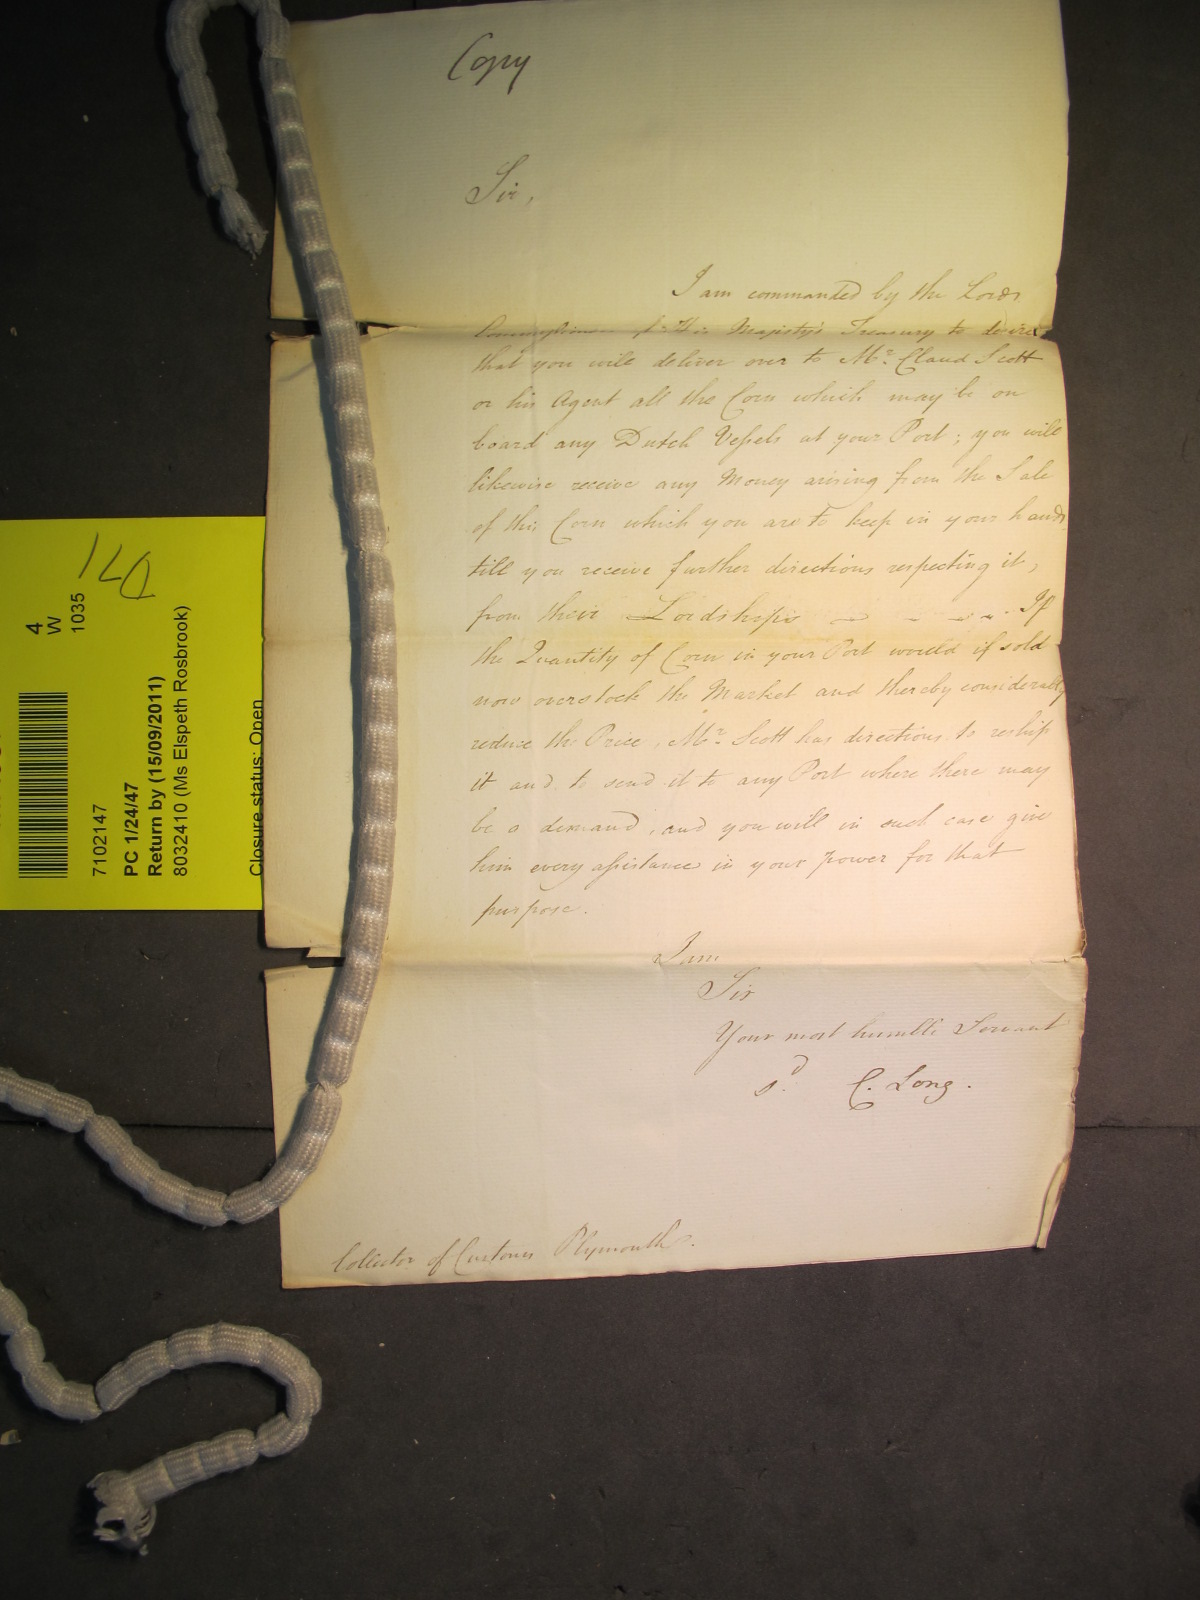 Copy
Sir,
I am commanded by the Lords
Commissioners of His Majesty's Treasury to desire
that you will deliver over to Mr. Claud Scott
or his Agent all the Corn which may be on
board any Dutch Vessels at your Port; you will
likewise receive any Money arising from the Sale
of this Corn which you are to keep in your hands
till you receive further directions respecting it,
from their Lordships - - - - If
the Quantity of Corn in your Port would if sold
now overstock the Market and thereby considerably
reduce the Price, Mr. Scott has directions to reship
it and to send it to any Port where there may
be a demand, and you will in such case give
him every assistance in your power for that
purpose.
I am
Sir
Your most humble Servant
sd. C. Long.
Collector of Customs Plymouth.
4
W
1035
7102147
PC 1/24/47
Return by (15/09/2011)
8032410 (Ms Elspeth Rosbrook)
Closure status: Open